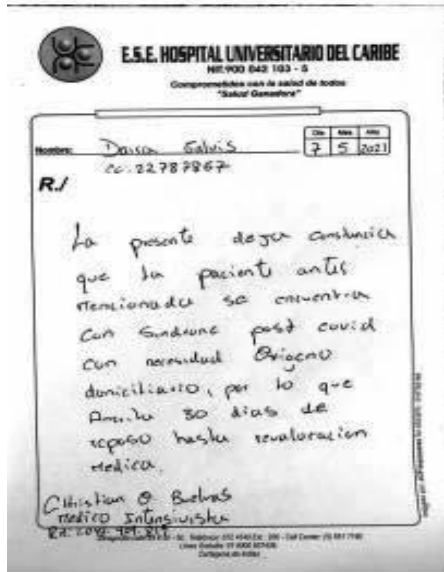 E.S.E. HOSPITAL UNIVERSITARIO DEL CARIBE
NIT.900 042 103 - 5
Comprometidos con la salud de todos
"Salud Ganadora"
Día Mes Año
Nombre: Galvis 7 5 2021
cc. 22787867
R./
La presente deja constancia
que la paciente antes
mencionada se encuentra
con sindrome post covid
con necesidad Oxigeno
domiciliario, por lo que
30 dias de
reposo hasta revaloracion
medica.
Christian O. Buelvas
Medico Intensivista
Cartagena de Indias